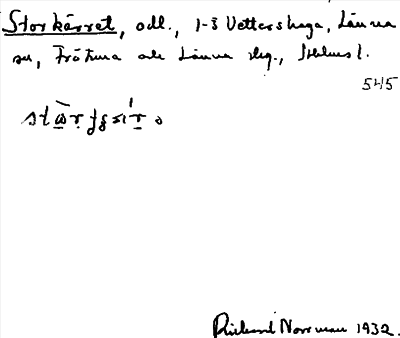 Storkärret, odl., 1-3 Vettershaga, Länna
sn, Frötuna och Länna skg., Sthlms l.
545
Rickard Norrman 1932.